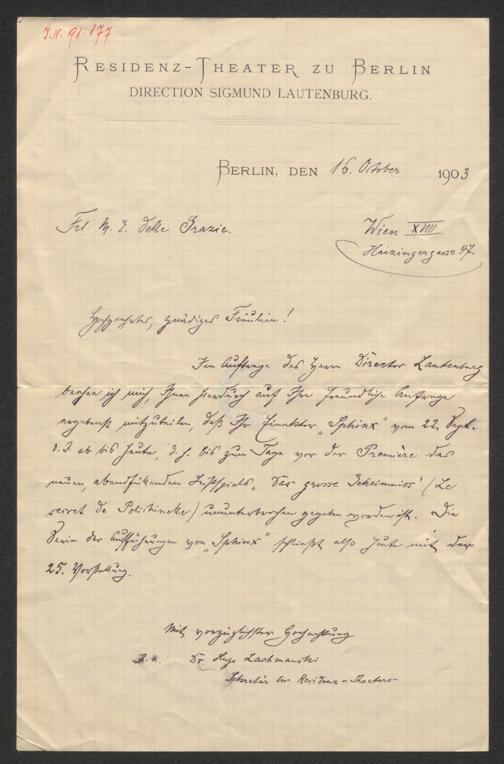 J.N. 91.177
RESIDENZ-THEATER ZU BERLIN
DIRECTION SIGMUND LAUTENBURG.
BERLIN, DEN 16. October 1903
Frl. M. E. delle Grazie.
Wien XVIII.
Haizingergasse 47.
Hochgeehrtes, gnädiges Fräulein!
Im Auftrage des Herrn Director Lautenburg
beehre ich mich Ihnen hierdurch auf Ihre freundliche Anfrage
ergebenst mitzuteilen, daß Ihr Einakter „Sphinx" vom 22. Sept.
d. J. ab bis heute, d. h. bis zum Tage vor der Première des
neuen, abendfüllenden Lustspiels „Das grosse Geheimniss" (Le
secret de Polichinelle) ununterbrochen gegeben worden ist. Die
Serie der Aufführungen von „Sphinx" schließt also heute mit der
25. Vorstellung.
Mit vorzüglichster Hochachtung
Dr. Hugo Lachmanski
Sekretär des Residenz-Theaters